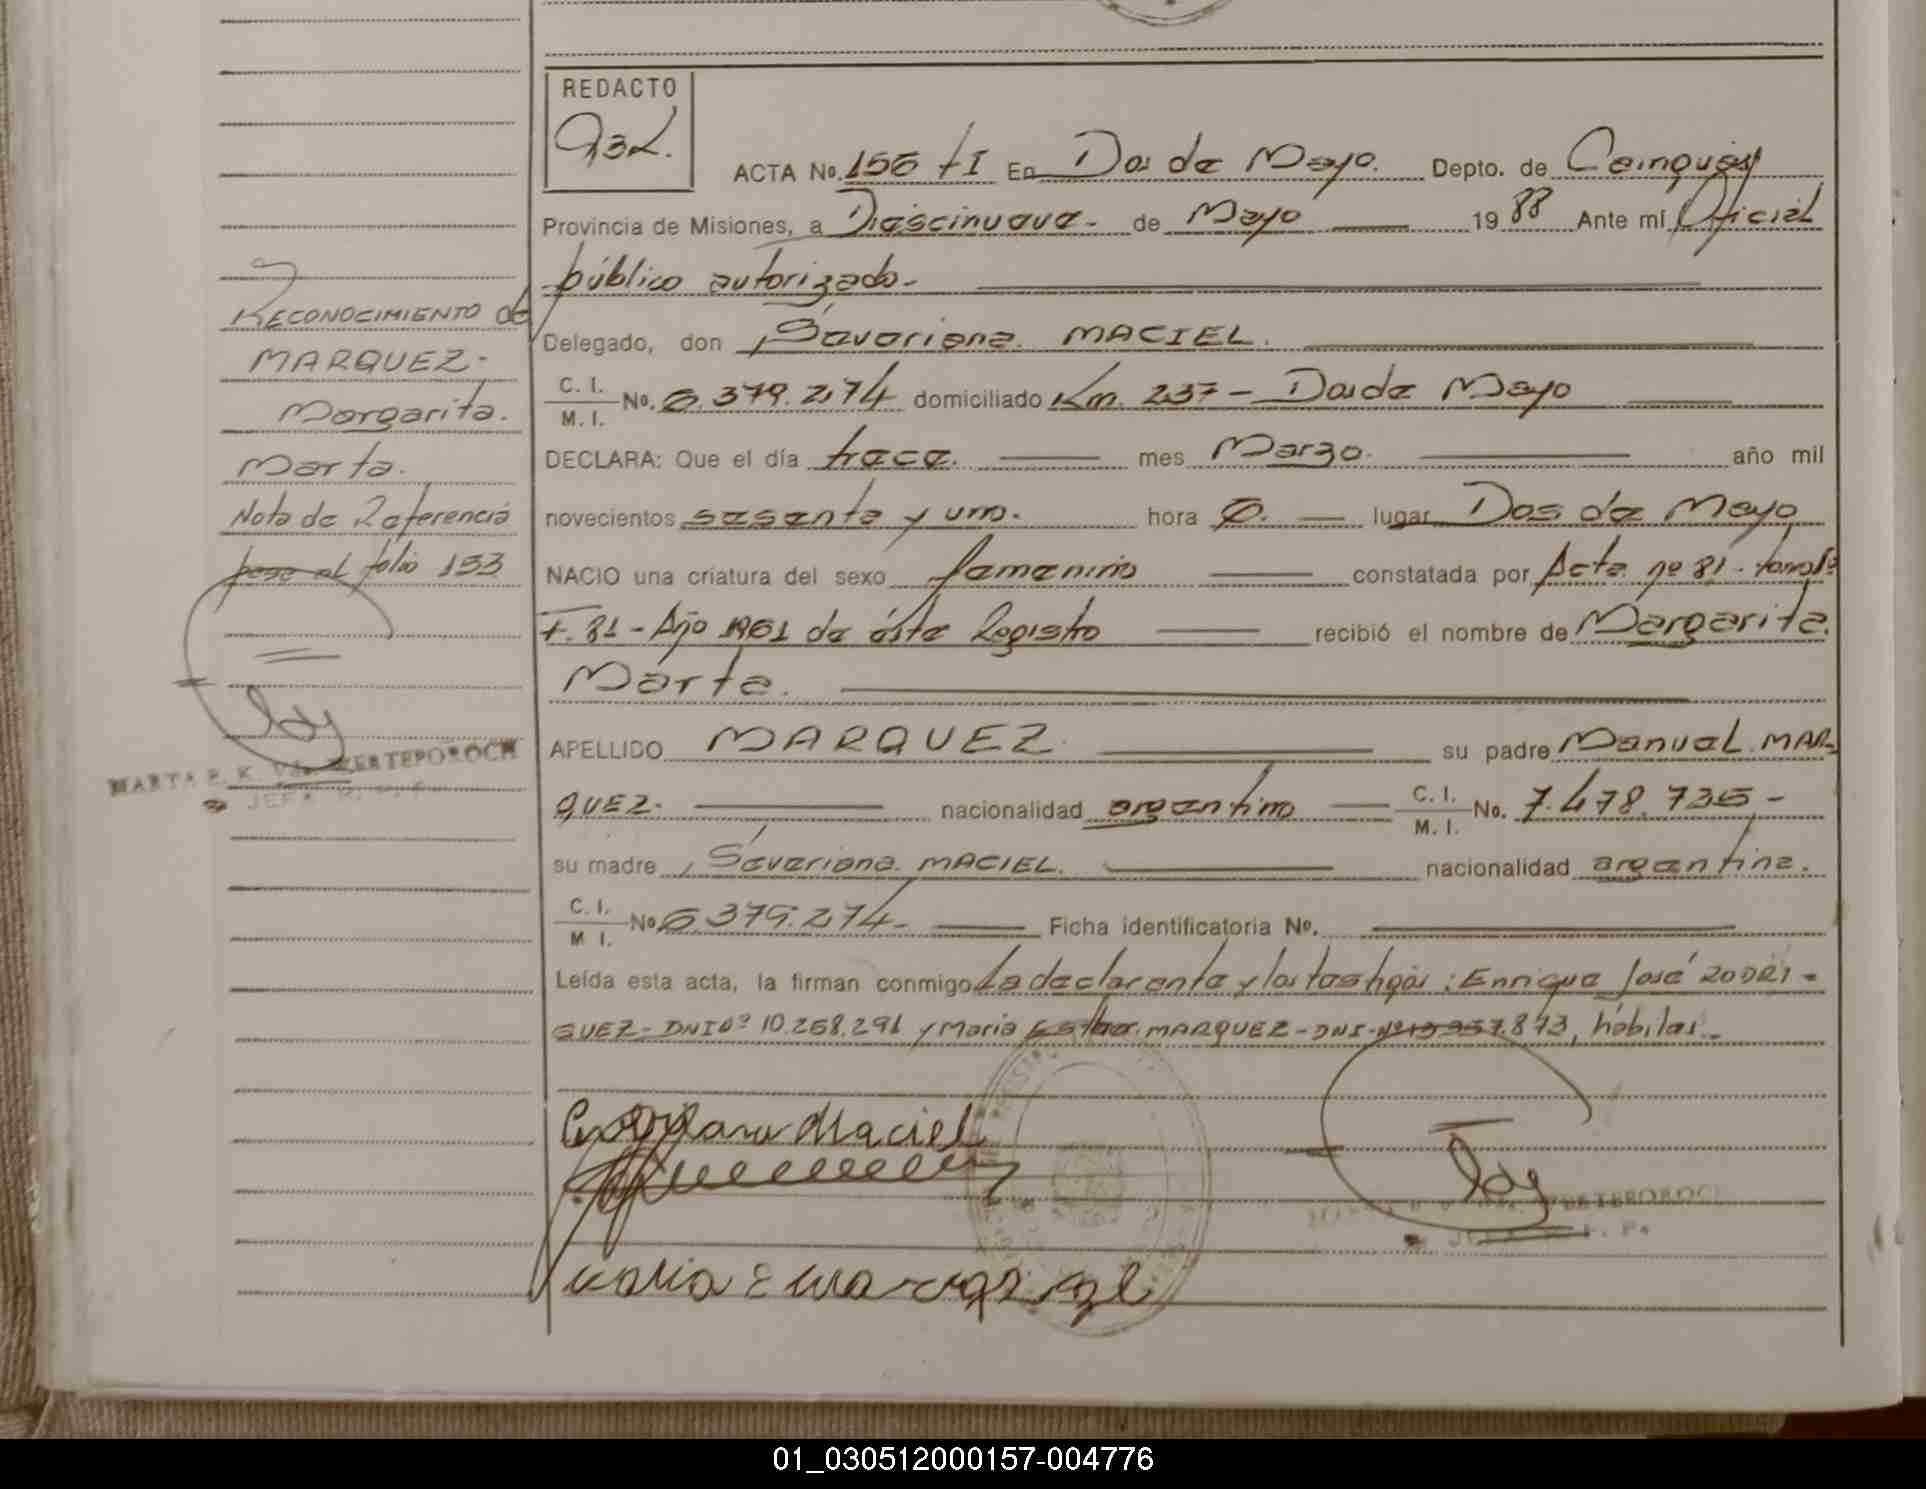 REDACTO
ACTA No. 156 tI En Dos de Mayo. Depto. de Cainguás
Provincia de Misiones, a Diescinueve - de Mayo 19 88 Ante mí Oficial
público autorizado -
Delegado, don Severiana MACIEL.
C. I.
M. I.
No. 6.379.274 domiciliado Km. 237 - Dos de Mayo
DECLARA: Que el día trece. mes Marzo. año mil
novecientos sesenta y uno. hora 0. lugar Dos de Mayo
NACIO una criatura del sexo femenino constatada por Acta nº 81 - tomo Iº
F. 81 - Año 1961 de éste Registro recibió el nombre de Margarita.
Marta.
APELLIDO MARQUEZ. su padre Manuel MAR-
QUEZ. nacionalidad argentino C. I.
M. I.
No. 7.478.735 -
su madre, Severiana MACIEL. nacionalidad argentina.
C. I.
M I.
No. 6.379.274 - Ficha identificatoria No.
Leída esta acta, la firman conmigo La declarante y los testigos: Enrique José RODRI-
GUEZ - DNI Nº 10.268.291 y Maria Esther MARQUEZ - DNI - Nº 13.937.873, hábiles.
Maciel
RECONOCIMIENTO de
MARQUEZ -
Margarita.
Marta.
Nota de Referencia
pase al folio 153
MARTA E. K. Vda. DERTEPOROCH
JEFA R. P.
01_030512000157-004776